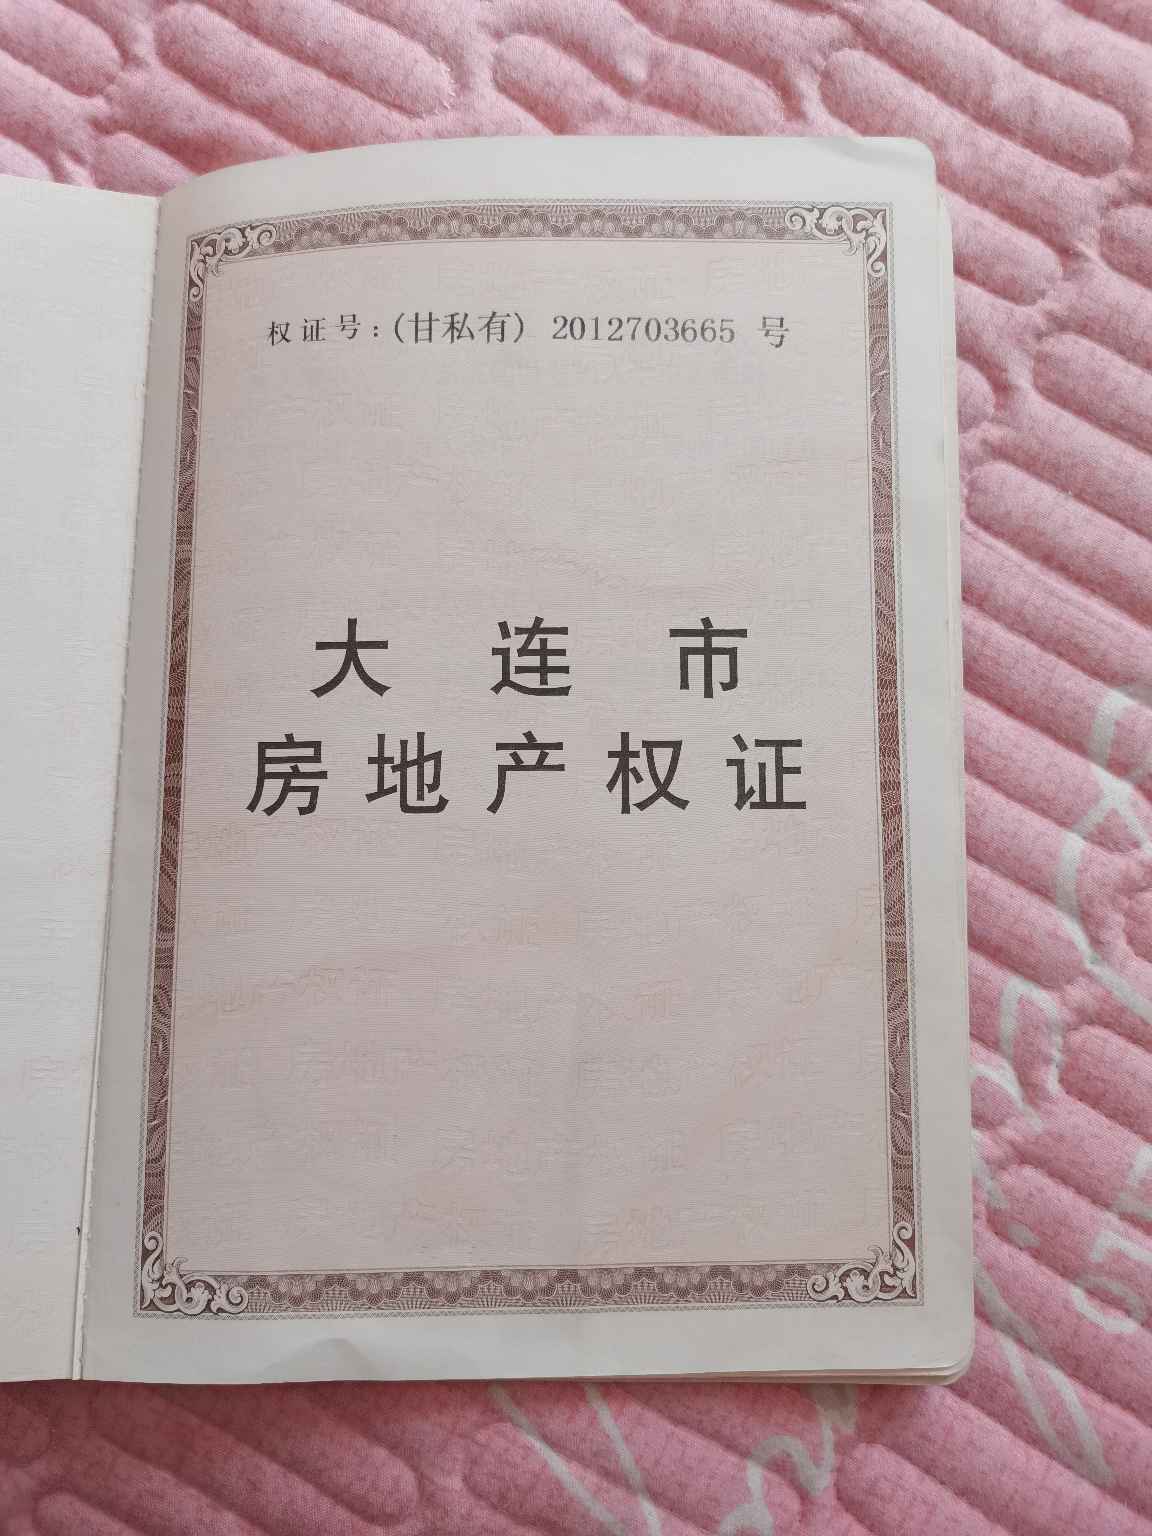 权证号：(甘私有) 2012703665 号
大连市
房地产权证